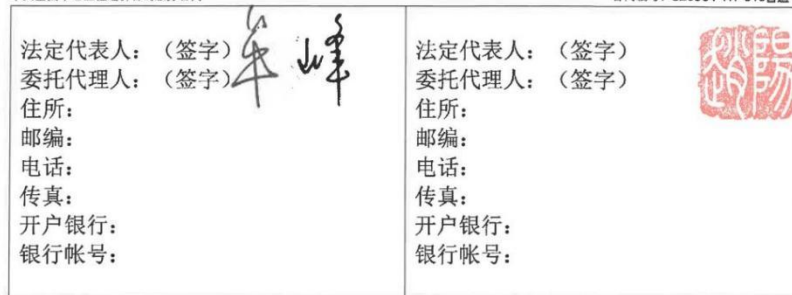 法定代表人：（签字）
委托代理人：（签字）
住所：
邮编：
电话：
传真：
开户银行：
银行帐号：
法定代表人：（签字）
委托代理人：（签字）
住所：
邮编：
电话：
传真：
开户银行：
银行帐号：